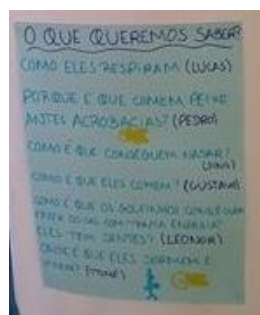 O QUE QUEREMOS SABER?
COMO ELES RESPIRAM (LUCAS)
PORQUE É QUE COMEM PEIXE
ANTES ACROBACIAS? (PEDRO)
COMO É QUE CONSEGUEM NADAR?
COMO É QUE ELES COMEM? (GUSTAVO)
COMO É QUE OS GOLFINHOS CONSEGUEM
FAZER COISAS COM TANTA ENERGIA?
ELES TEM DENTES? (LEONOR)
ONDE É QUE ELES DORMEM E